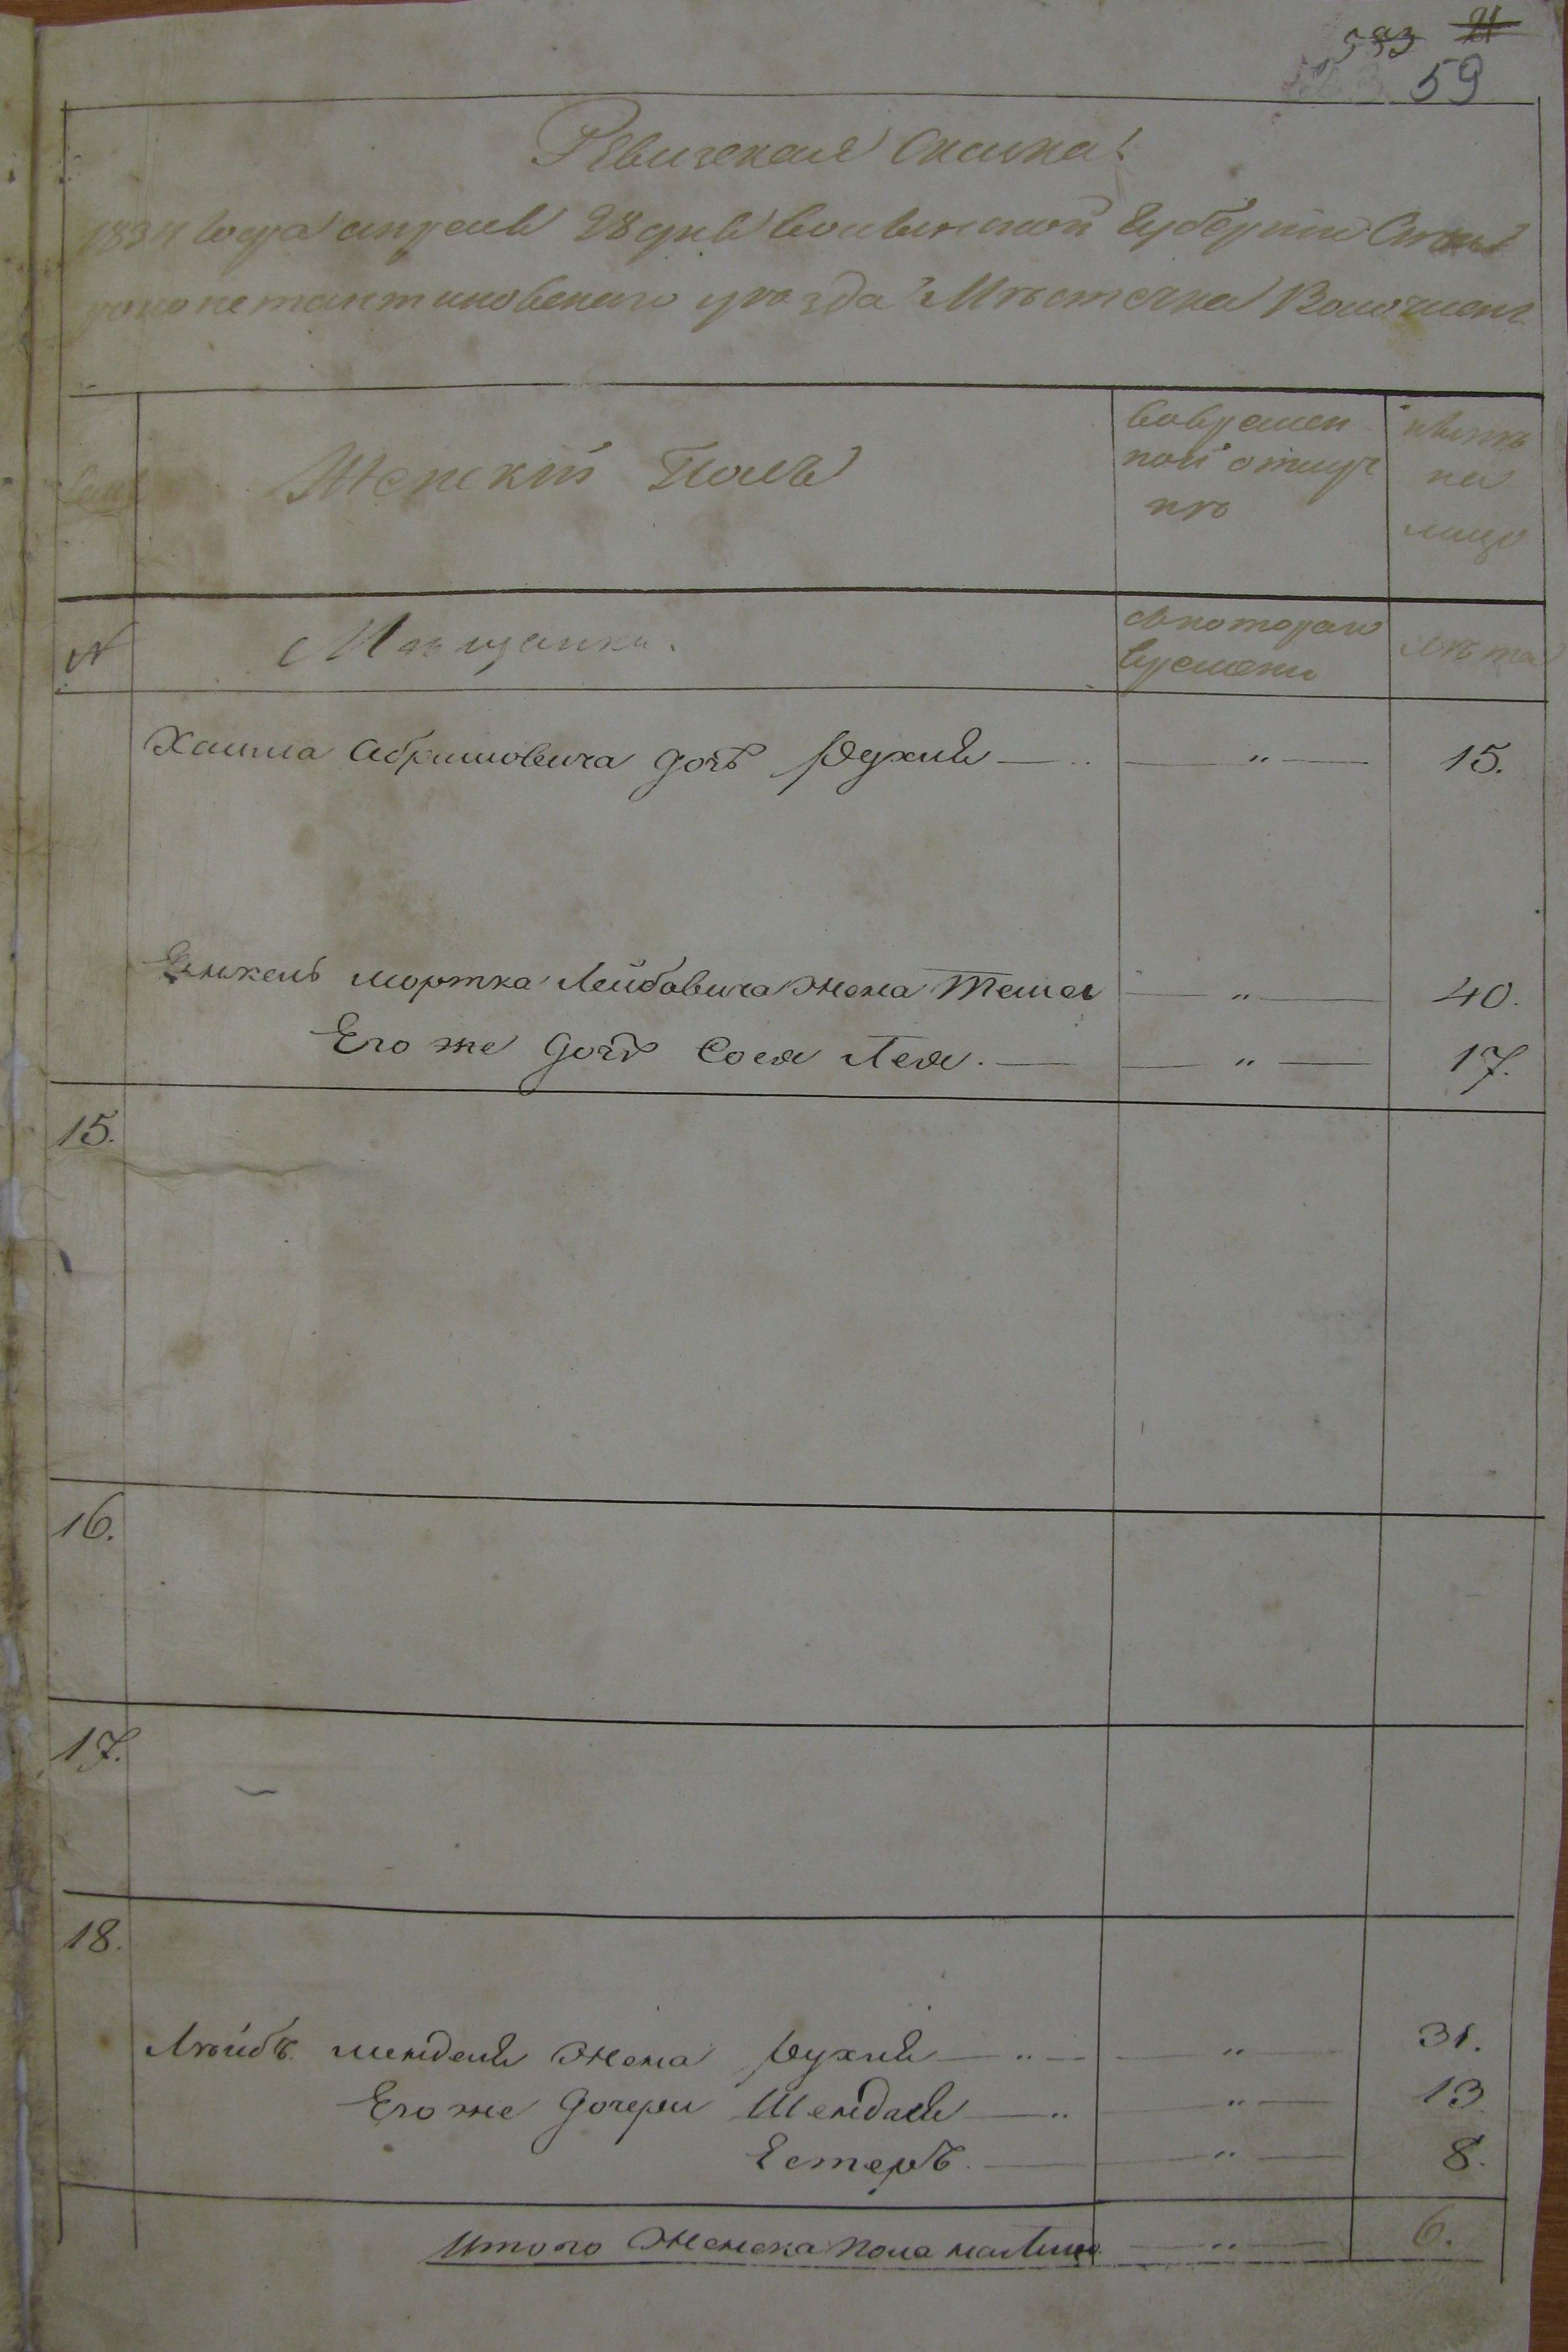 593 21
59
Ревизская Сказка
1834 Года апреля 28 дня Волынской Губернии Старо
константиновского уезда Местечка Волочиск
Женский Полъ
Вовремен
ной отлуч
кѣ
нынѣ
на
лицо
Семьи
№
Мѣщанки.
Скотораго
времени
Лѣта
Хаима Абрамовича дочь Рухля — " — 15.
Янкель мортка Лейбовича жена Темa — " — 40.
Его же дочь Сося Лея. — " — 17.
15.
16.
17.
18.
Лейбъ менделя жена Рухля — " — 31.
Его же дочери Шендля — " — 13
Естеръ. — " — 8.
Итого Женска пола налицо — " — 6.